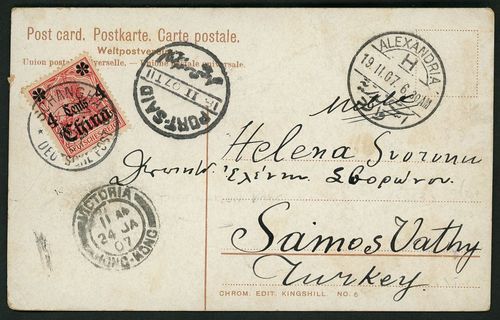 Post card. Postkarte. Carte postale.
Weltpostverein
Union postale universelle. – Unione postale universale.
4 Cents 4
China
PORT-SAID
II 07 T II
ALEXANDRIA
H
19.II.07. 6.30AM
Helena Svoronu
Ἑλένην Σβορώνου.
VICTORIA
11 AM
24 JA
07
HONG-KONG
Samos Vathy
Turkey
CHROM. EDIT. KINGSHILL. NO. 6